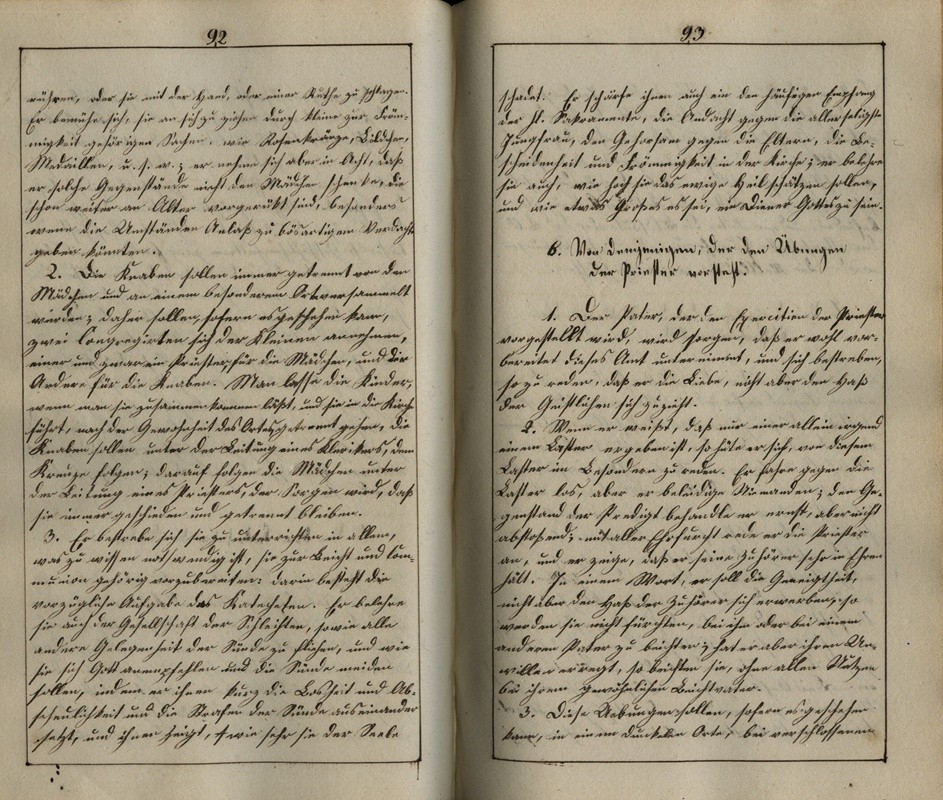 92
rühren, oder sie mit der Hand, oder einer Ruthe zu schlagen.
Er bemühe sich, sie an sich zu ziehen durch kleine zur Fröm-
migkeit gehörigen Sachen, wie Rosenkränze, Bildchen,
Medaillen, u. s. w.; er nehme sich aber in Acht, daß
er solche Gegenstände nicht den Mädchen schenke, die
schon weiter an Alter vorgerükt sind, besonders
wenn die Umständen Anlaß zu bösartigem Verdacht
geben könnten.
2. Die Knaben sollen immer getrennt von den
Mädchen und an einem besonderem Ort versammelt
werden; daher sollen, sofern es geschehen kann,
zwei Congregirten sich der Kleinen annehmen,
einer und zwar ein Priester, für die Mädchen, und der
Andere für die Knaben. Man lasse die Kinder,
wenn man sie zusammenkommen läßt, und sie in die Kirche
führt, nach der Gewohnheit des Ortes getrennt gehen, die
Knaben sollen unter der Leitung eines Klerikers, dem
Kreuze folgen; darauf folgen die Mädchen unter
der Leitung eines Priesters, der Sorgen wird, daß
sie immer geschieden und getrennt bleiben.
3. Er bestrebe sich sie zu unterrichten in allem,
was zu wissen nothwendig ist, sie zur Beicht und Com-
munion gehörig vorzubereiten: darin besteht die
vorzügliche Aufgabe des Katecheten. Er belehre
sie auch der Gesellschaft der Schlechten, sowie alle
andere Gelegenheit der Sünde zu fliehen, und wie
sie sich Gott anempfehlen und die Sünde meiden
sollen, indem er ihnen kurz die Bosheit und Ab-
scheulichkeit und die Strafen der Sünde auseinander
setzt, und ihnen zeigt, wie sehr sie der Seele
93
schadet. Er schärfe ihnen auch ein den häufigen Empfang
der hl. Sakramente, die Andacht gegen die allerseligste
Jungfrau, den Gehorsam gegen die Eltern, die Be-
scheidenheit und Frömmigkeit in der Kirche; er belehre
sie auch, wie hoch sie das ewige Heil schätzen sollen,
und wie etwas Großes es sei, ein Diener Gottes zu sein.
6. Von demjenigen, der den Übungen
der Priester vorsteht.
1. Der Pater, der den Exercitien der Priester
vorgestellt wird, wird sorgen, daß er wohl vor-
bereitet dieses Amt unternimmt, und sich bestreben,
so zu reden, daß er die Liebe, nicht aber den Haß
der Geistlichen sich zuzieht.
2. Wenn er weißt, daß nur einer allein irgend
einem Laster ergeben ist, so hüte er sich, von diesem
Laster im Besondern zu reden. Er fahre gegen die
Laster los, aber er beleidige Niemanden; den Ge-
genstand der Predigt behandle er ernst, aber nicht
abstoßend; mit aller Ehrfurcht rede er die Priester
an, und er zeige, daß er seine Zuhörer sehr in Ehren
hält. In einem Wort, er soll die Geneigtheit,
nicht aber den Haß der Zuhörer sich erwerben, so
werden sie nicht fürchten, bei ihm oder bei einem
anderen Pater zu beichten; hat er aber ihren Un-
willen erregt, so beichten sie, ohne allen Nutzen
bei ihrem gewöhnlichen Beichtvater.
3. Diese Uebungen sollen, sofern es geschehen
kann, in einem dunkeln Orte, bei verschlossenen